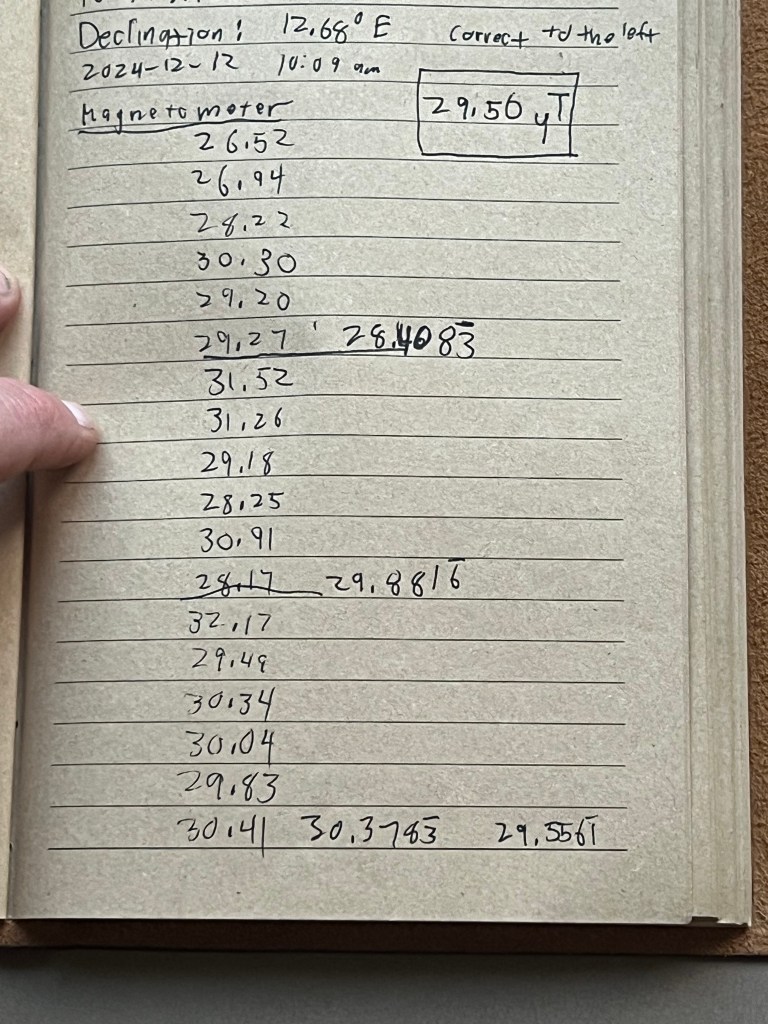 Declination: 12.68° E Correct to the left
2024-12-12 10:09 am
29.50 µT
Magnetometer
26.52
26.94
28.22
30.30
29.20
29.27 28.4083̅
31.52
31.26
29.18
28.25
30.91
28.17 29.8816̅
32.17
29.49
30.34
30.04
29.83
30.41 30.3783̅ 29.5561̅